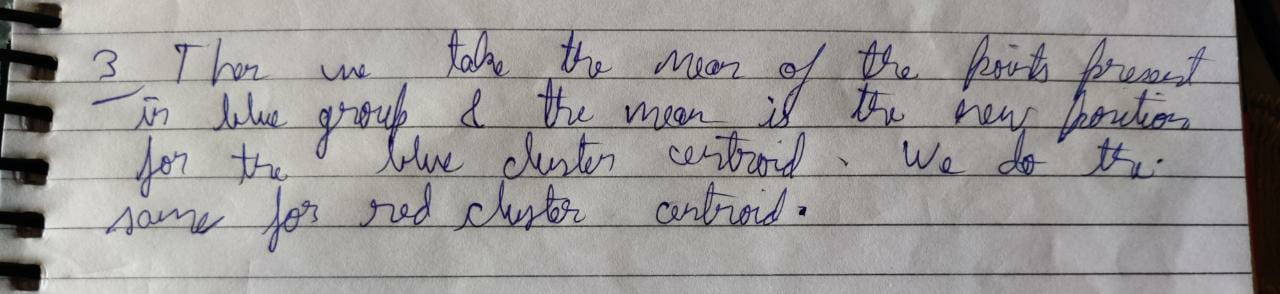 3 Then we take the mean of the points present
in blue group & the mean is the new position
for the blue cluster centroid. We do the
same for red cluster centroid.